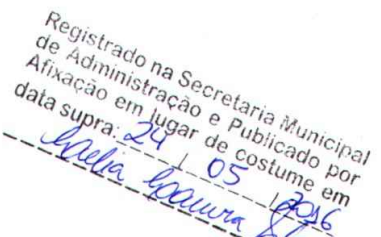 Registrado na Secretaria Municipal
de Administração e Publicado por
Afixação em lugar de costume em
data supra: 24 / 05 / 2016